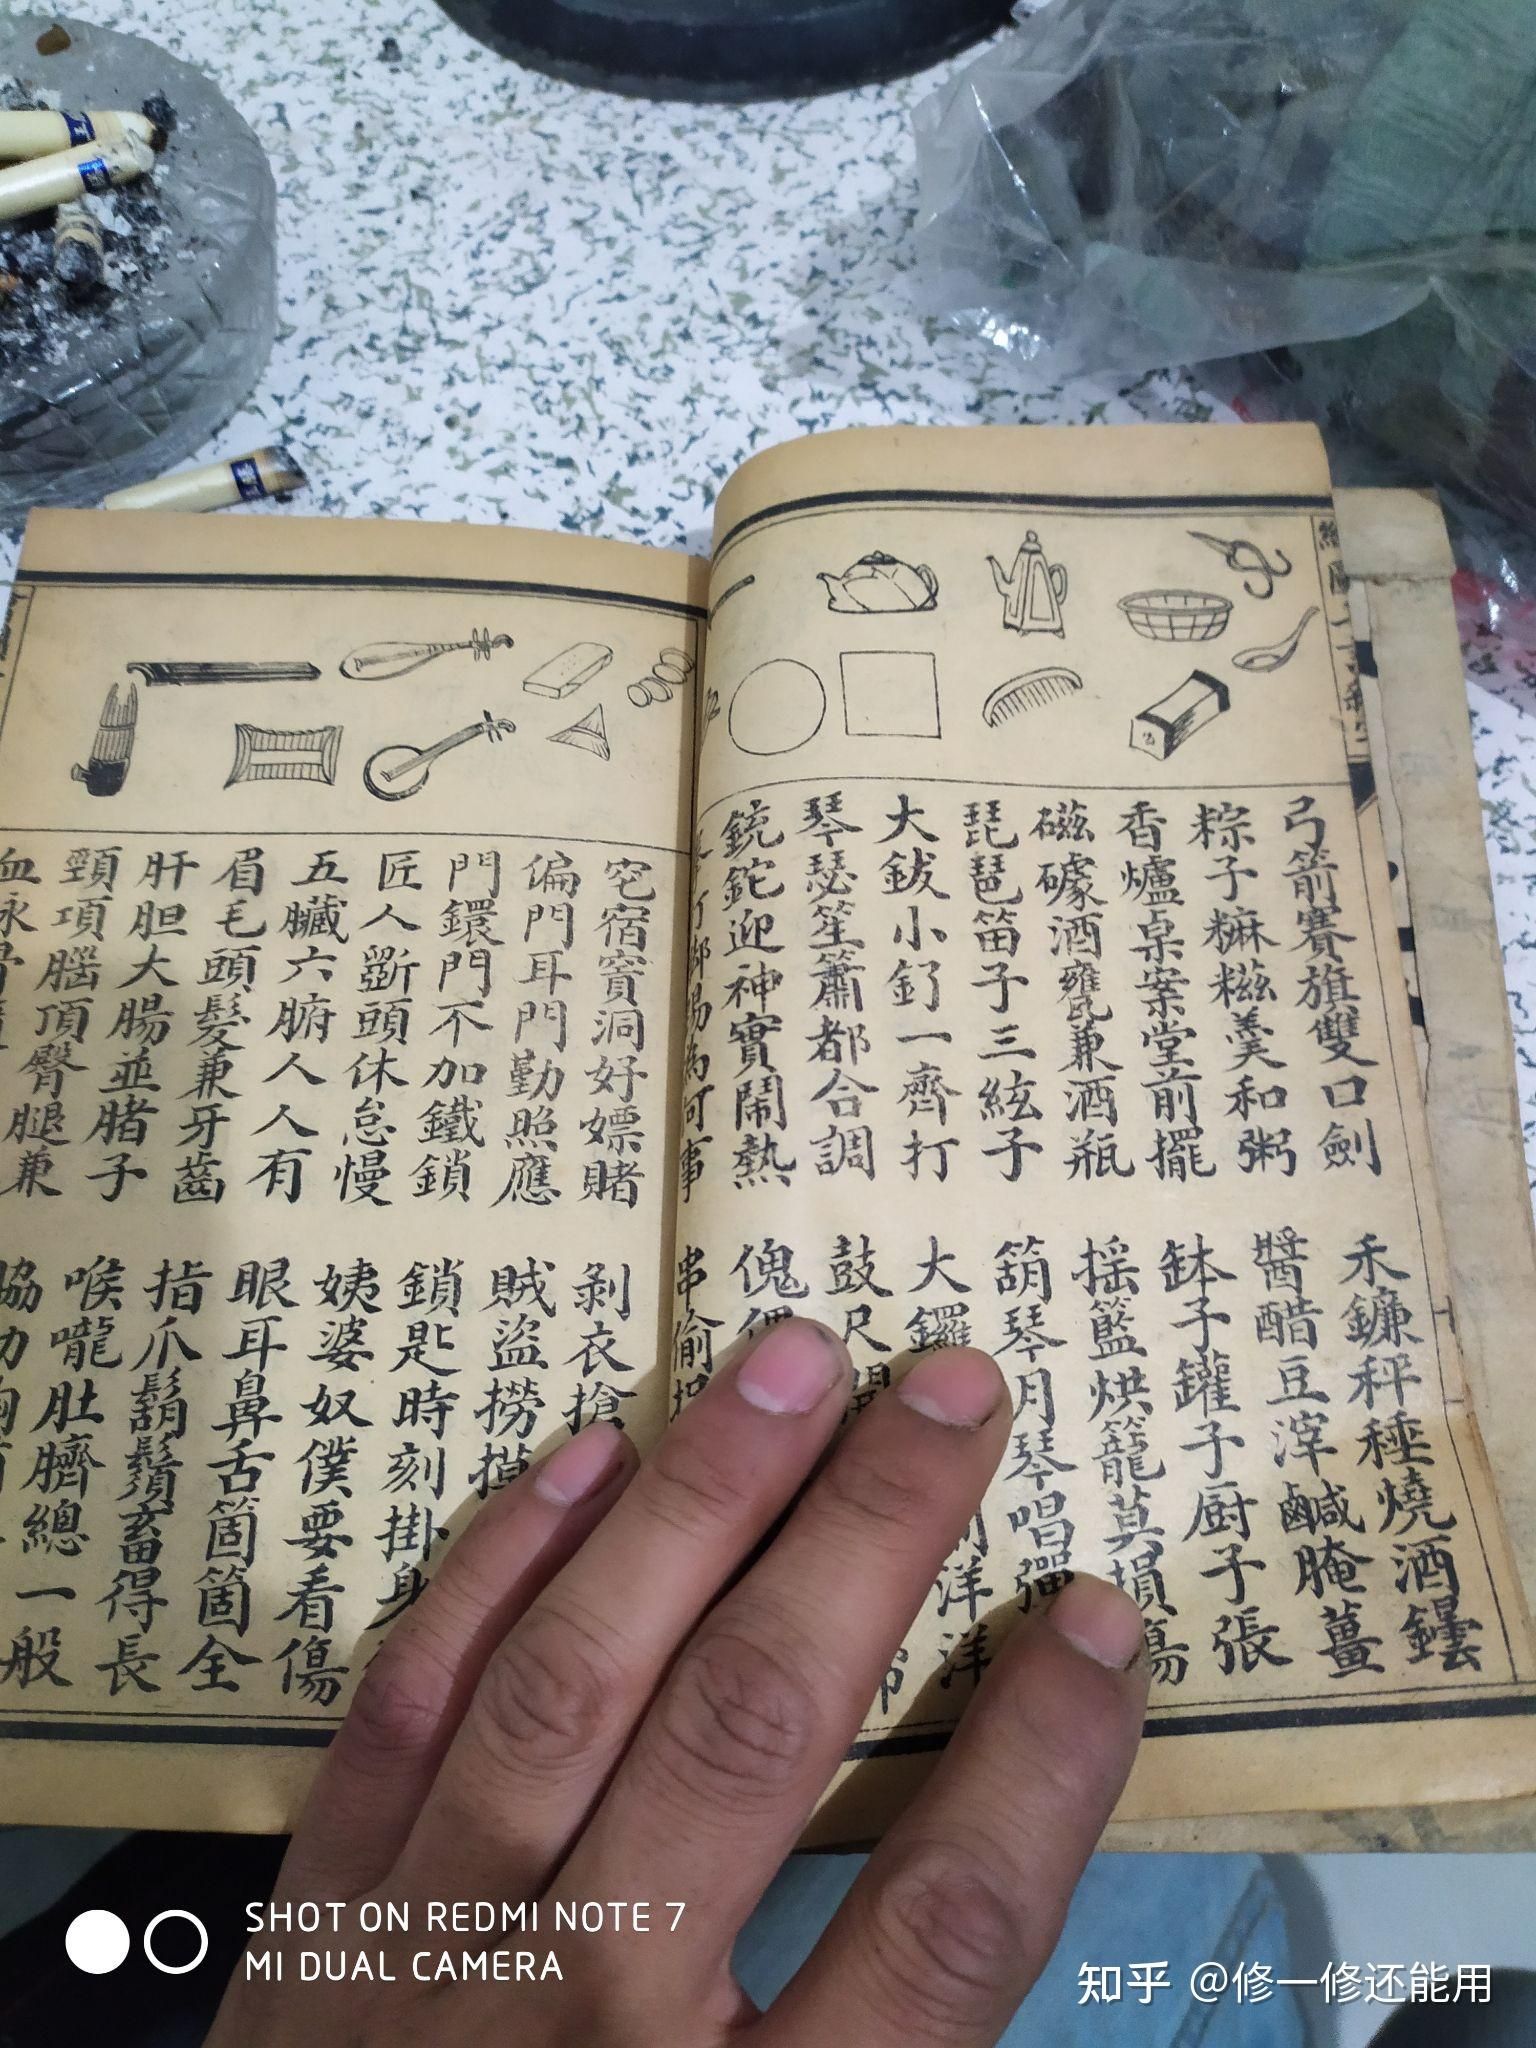 弓箭賽旗雙口劍
禾鐮秤種燒酒鑸
粽子糍糍羹和粥
醬醋豆滓鹹腌薑
香爐桌案堂前擺
缽子罐子厨子張
磁礞酒甕兼酒瓶
揺籃烘籠莫損傷
琵琶笛子三絃子
箶琴月琴唱彈
大鈸小釕一齊打
大鑼 洋洋
琴瑟笙簫都合調
鼓尺
銃鉈迎神實鬧熱
傀
為何事
串偷
宿竇洞好嫖賭
剝衣搶
偏門耳門勤照應
賊盜撈摸
門鐶門不加鐵鎖
鎖匙時刻掛身
匠人斵頭休怠慢
姨婆奴僕要看傷
五臟六腑人人有
眼耳鼻舌箇箇全
眉毛頭髮兼牙齒
指爪鬍鬚畜得長
肝胆大腸並䐗子
喉嚨肚臍總一般
頸項腦頂臀腿兼
血
SHOT ON REDMI NOTE 7
MI DUAL CAMERA
知乎 @修一修还能用